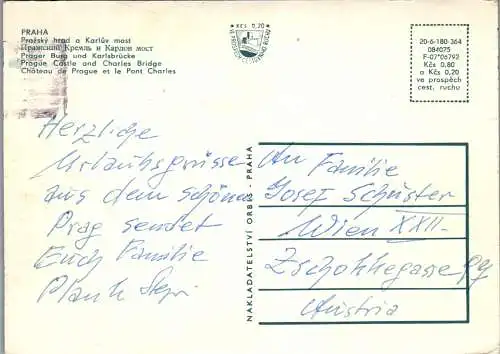 PRAHA
Pražský hrad a Karlův most
Пражский Кремль и Карлов мост
Prager Burg und Karlsbrücke
Prague Castle and Charles Bridge
Château de Prague et le Pont Charles
Kčs 0,20
VE PROSPĚCH CESTOVNÍHO RUCHU
20-6-180-364
084075
F-07*06792
Kčs 0,80
a Kčs 0,20
ve prospěch
cest. ruchu
Herzliche
Urlaubsgrüsse
aus dem schönen
Prag sendet
Euch Familie
Plank
NAKLADATELSTVÍ ORBIS - PRAHA
An Familie
Josef Schuster
Wien XXII.
Zschokkegasse
Austria